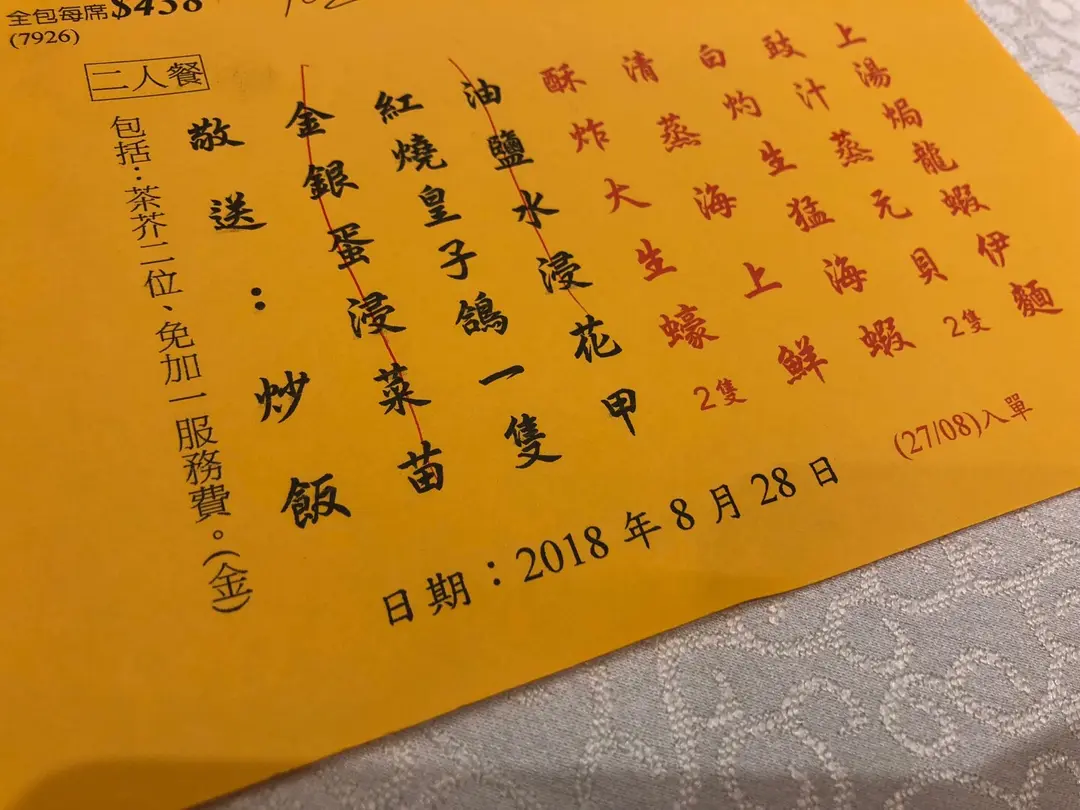 全包每席$438
(7926)
二人餐
上湯焗龍蝦伊麵
豉汁蒸元貝2隻
白灼生猛海蝦
清蒸海上鮮
酥炸大生蠔2隻
油鹽水浸花甲
紅燒皇子鴿一隻
金銀蛋浸菜苗
敬送：炒飯
包括：茶芥二位、免加一服務費。(金)
(27/08)入單
日期：2018年8月28日